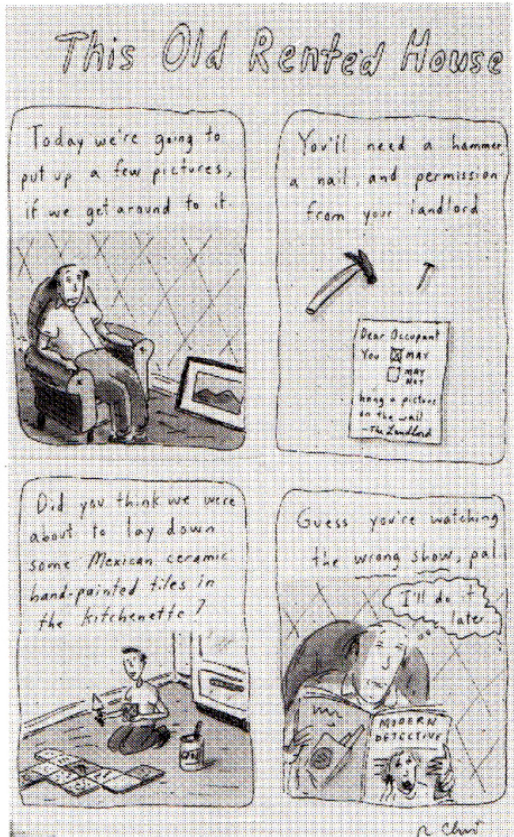 This Old Rented House
Today we're going to
put up a few pictures,
if we get around to it.
You'll need a hammer,
a nail, and permission
from your landlord
Dear Occupant
You ☒ MAY
☐ MAY
NOT
hang a picture
on the wall
-The Landlord
Did you think we were
about to lay down
some Mexican ceramic
hand-painted tiles in
the kitchenette?
Guess you're watching
the wrong show, pal
I'll do it
later
MODERN
DETECTIVE
R. Chast